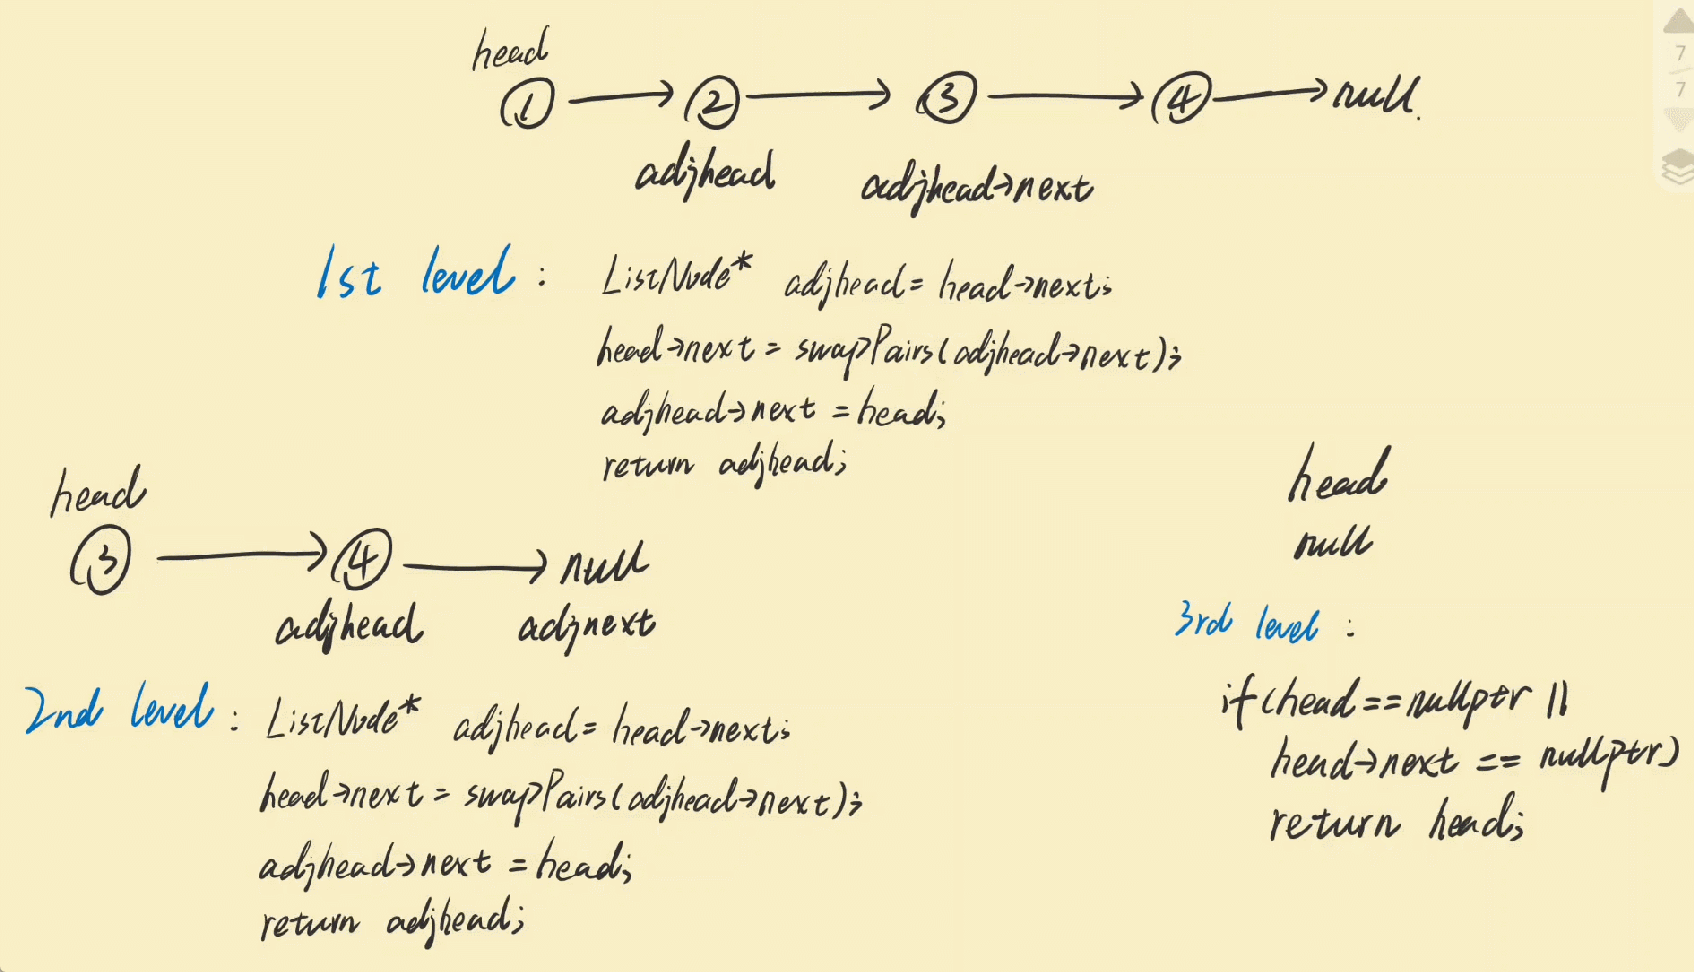 head
1 → 2 → 3 → 4 → null.
adjhead adjhead→next
1st level : ListNode* adjhead = head→next;
head→next = swapPairs(adjhead→next);
adjhead→next = head;
return adjhead;
head
3 → 4 → null
adjhead adjnext
2nd level : ListNode* adjhead = head→next;
head→next = swapPairs(adjhead→next);
adjhead→next = head;
return adjhead;
head
null
3rd level :
if(head==nullptr ||
head→next == nullptr)
return head;
7
7